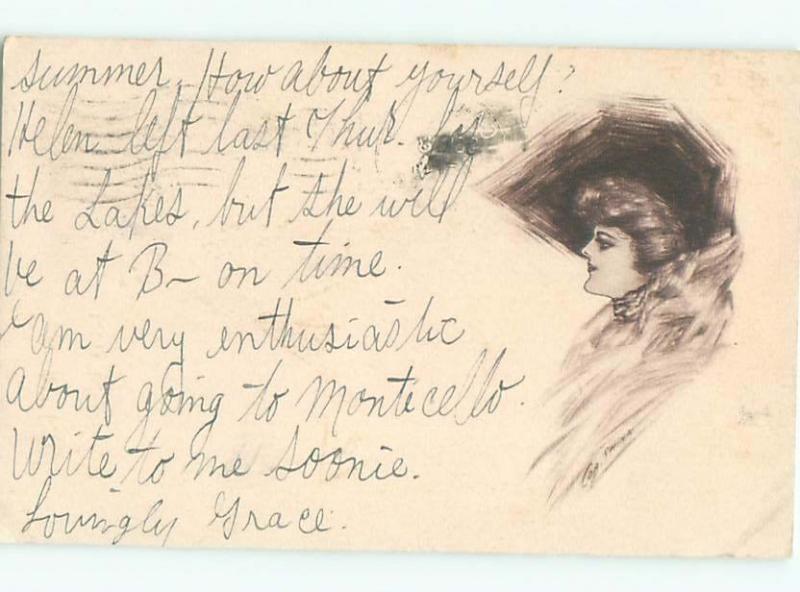 summer. How about yourself?
Helen left last Thur. for
the Lakes, but she will
be at B— on time.
I am very enthusiastic
about going to Monticello.
Write to me soonie.
Lovingly Grace.